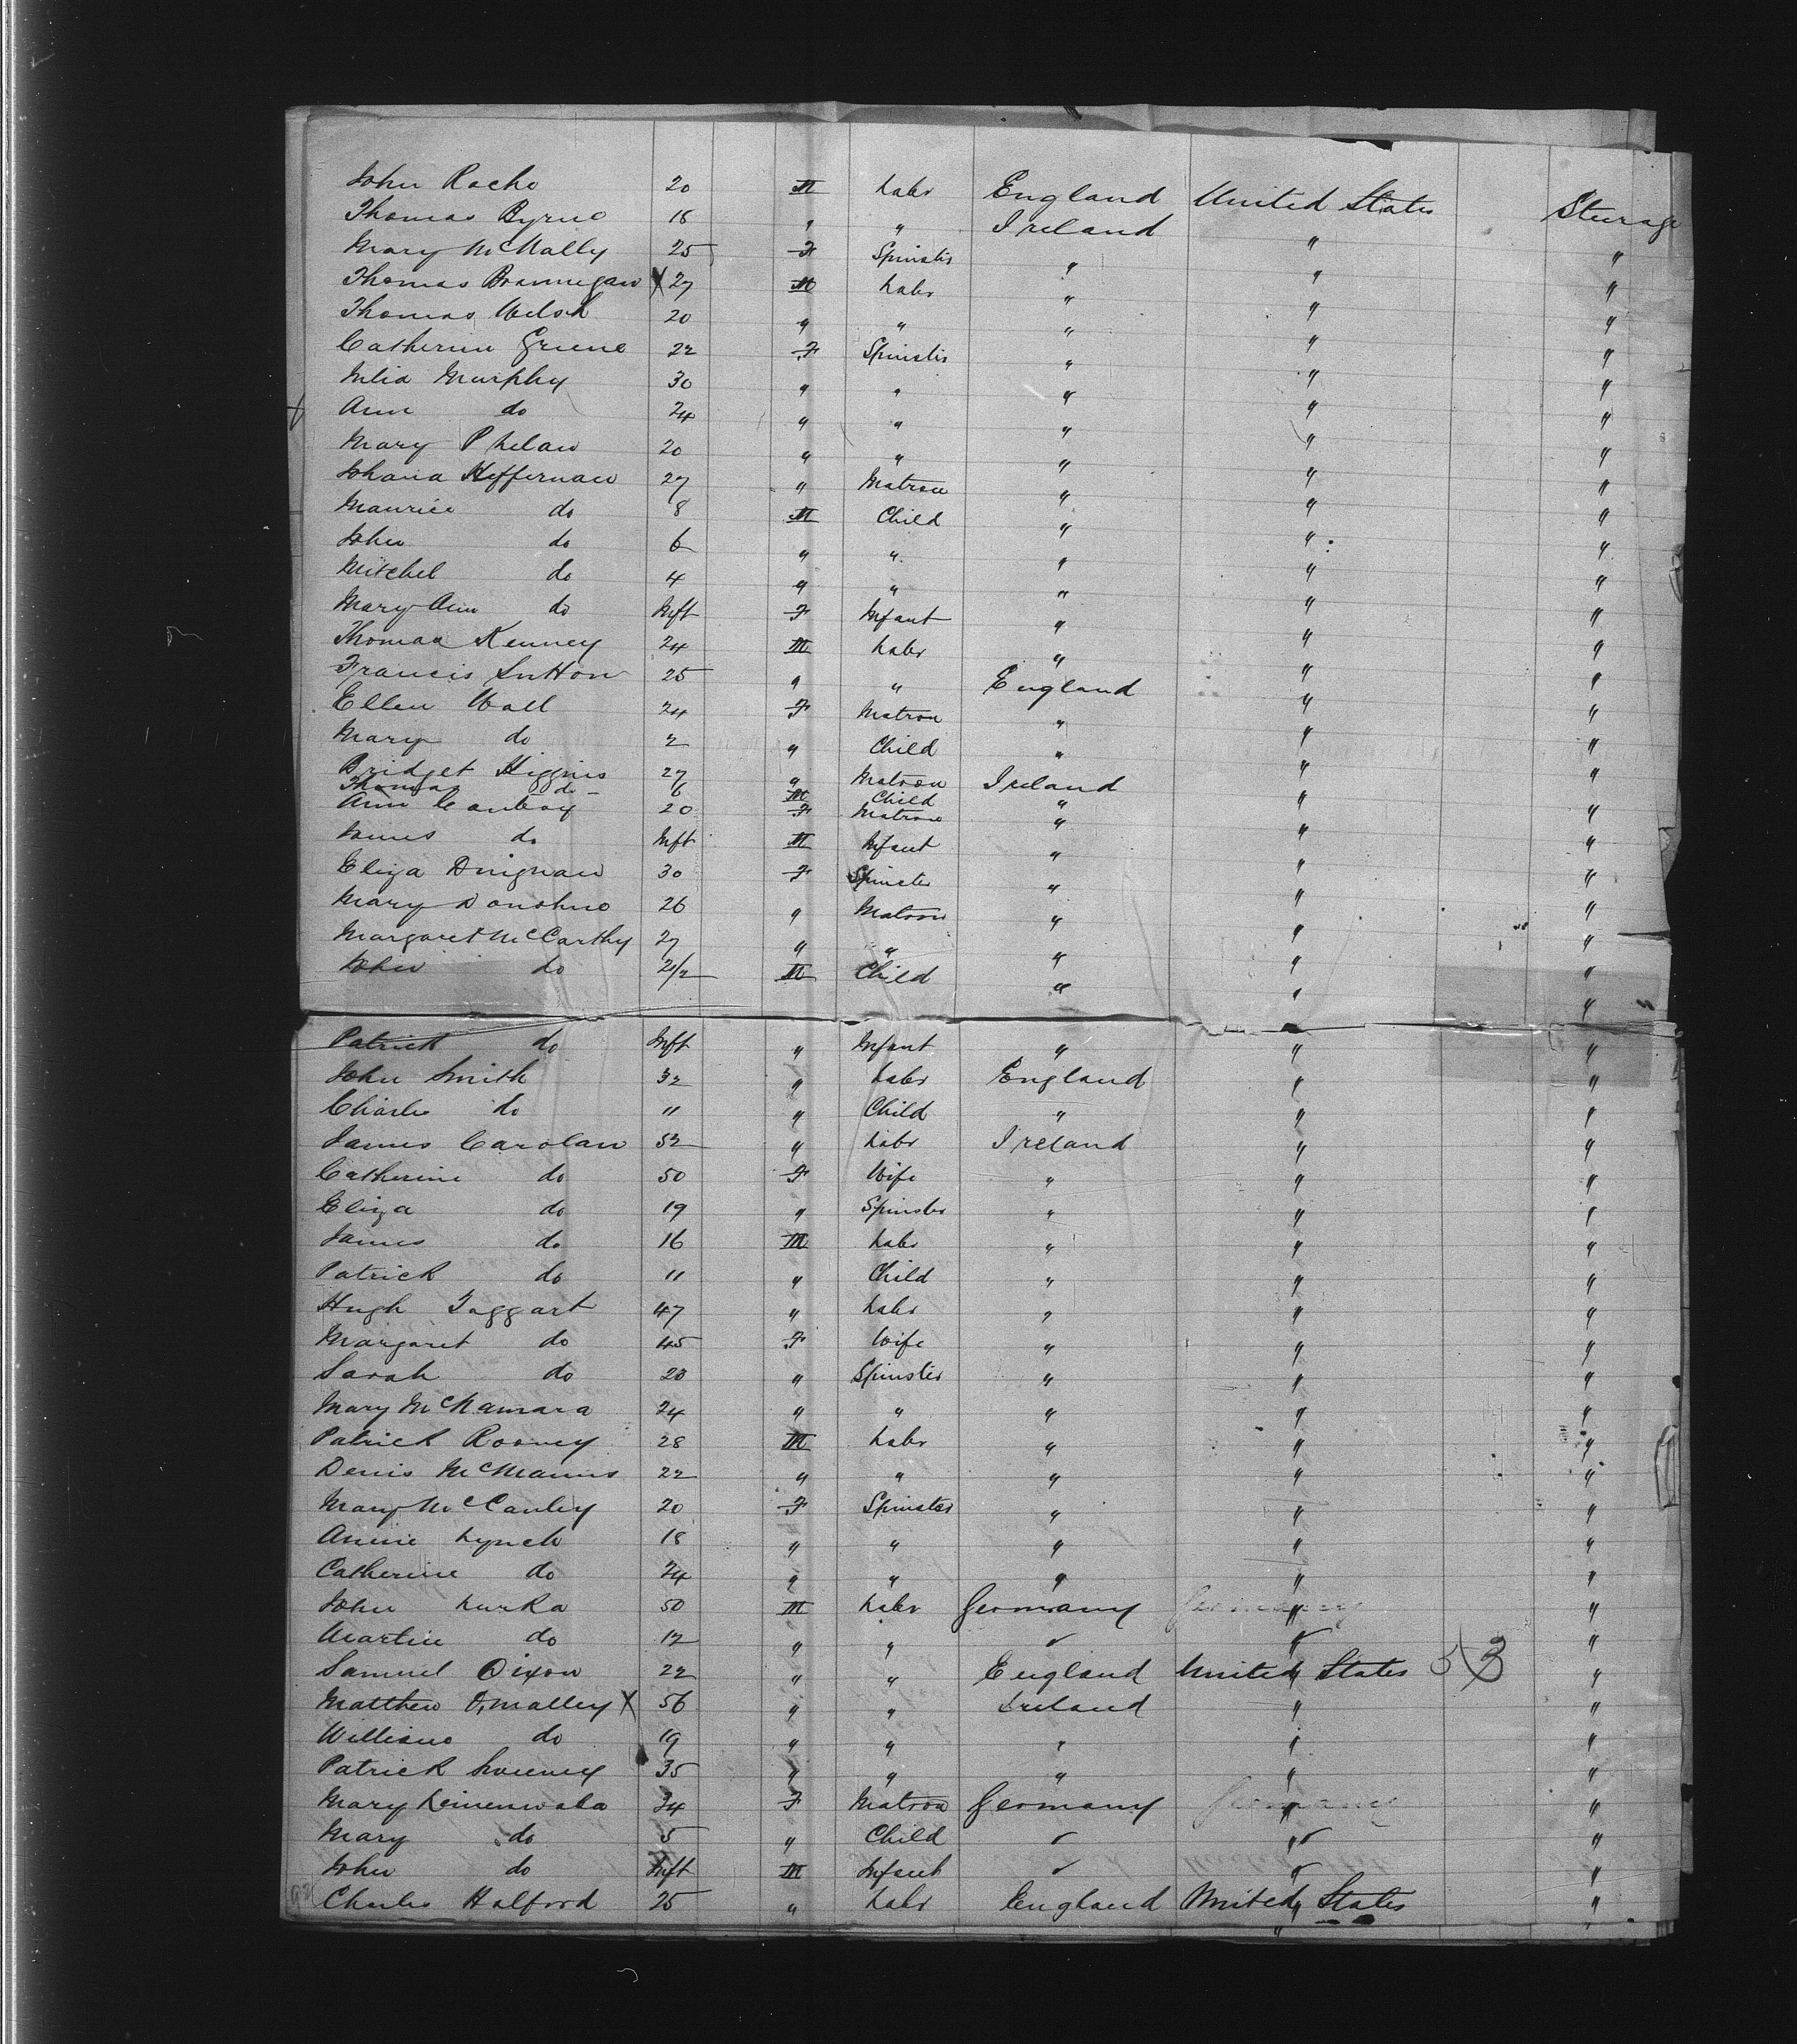 John Roche 20 M Labr England United States Steerage
Thomas Byrne 18 " " Ireland " "
Mary McNally 25 F Spinster " " "
Thomas Brannigan X 27 M Labr " " "
Thomas Welsh 20 " " " " "
Catherine Greene 22 F Spinster " " "
Julia Murphy 30 " " " " "
Ann do 24 " " " " "
Mary Phelan 20 " " " " "
Johana Heffernan 27 " Matron " " "
Maurice do 8 M Child " " "
John do 6 " " " " "
Mitchel do 4 " " " " "
Mary Ann do Inft F Infant " " "
Thomas Kenney 24 M Labr " " "
Francis Sutton 25 " " England " "
Ellen Wall 24 F Matron " " "
Mary do 2 " Child " " "
Bridget Higgins 27 " Matron Ireland " "
Thomas do 6 M Child " "
Ann Conboy 20 F Matron " " "
James do Inft M Infant " " "
Eliza Duignan 30 F Spinster " " "
Mary Donohue 26 " Matron " " "
Margaret McCarthy 27 " " " " "
John do 2 1/2 M Child " " "
Patrick do Inft " Infant " " "
John Smith 32 " Labr England " "
Charles do 11 " Child " " "
James Carolan 52 " Labr Ireland " "
Catherine do 50 F Wife " " "
Eliza do 19 " Spinster " " "
James do 16 M Labr " " "
Patrick do 11 " Child " " "
Hugh Taggart 47 " Labr " " "
Margaret do 45 F Wife " " "
Sarah do 20 " Spinster " " "
Mary McNamara 24 " " " " "
Patrick Rooney 28 M Labr " " "
Denis McManus 22 " " " " "
Mary McCauley 20 F Spinster " " "
Annie Lynch 18 " " " " "
Catherine do 24 " " " " "
John Lurka 50 M Labr Germany Germany " "
Martin do 12 " " " " "
Samuel Dixon 22 " " England United States 53 "
Matthew O'Malley X 56 " " Ireland " "
William do 19 " " " " "
Patrick Sweeney 35 " " " " "
Mary 34 F Matron Germany Germany " "
Mary do 5 " Child " " "
John do Inft M Infant " " "
Charles Halford 25 " Labr England United States "